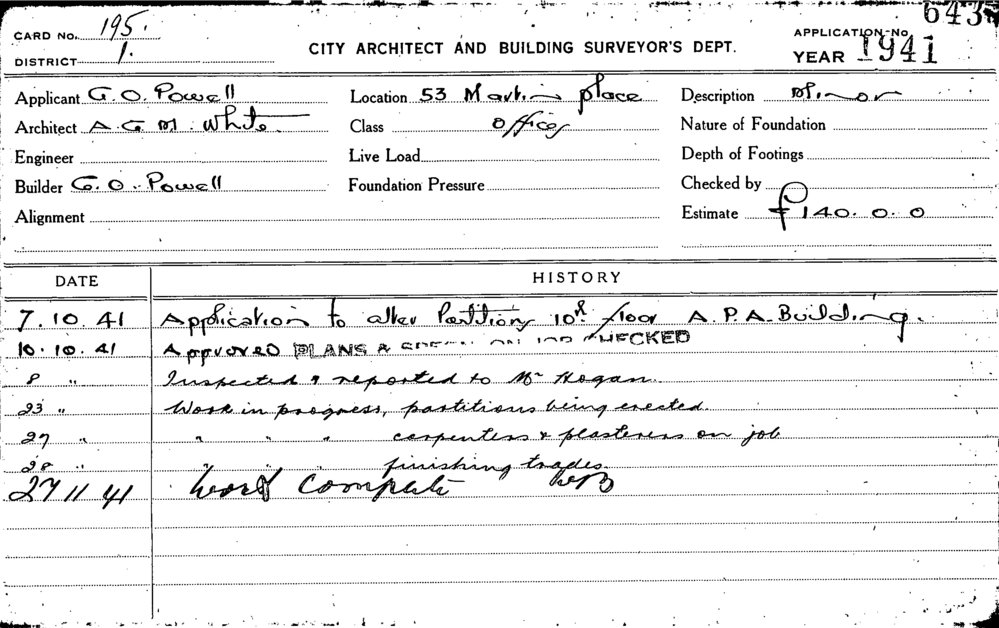 643
CARD No. 195.
APPLICATION No
DISTRICT 1.
CITY ARCHITECT AND BUILDING SURVEYOR'S DEPT.
YEAR 1941
Applicant G. O. Powell
Location 53 Martin place
Description Minor
Architect A. G. M. White
Class Offices
Nature of Foundation
Engineer
Live Load
Depth of Footings
Builder G. O. Powell
Foundation Pressure
Checked by
Alignment
Estimate £140. 0. 0
DATE
HISTORY
7. 10. 41 Application to alter Partitions 10th floor A. P. A. Building.
10. 10. 41 Approved PLANS & ON JOB CHECKED
8 " Inspected & reported to Mr Hogan.
23 " Work in progress, partitions being erected.
27 " " " " carpenters & plasterers on job
28 " " " " finishing trades.
27 11 41 Work Complete